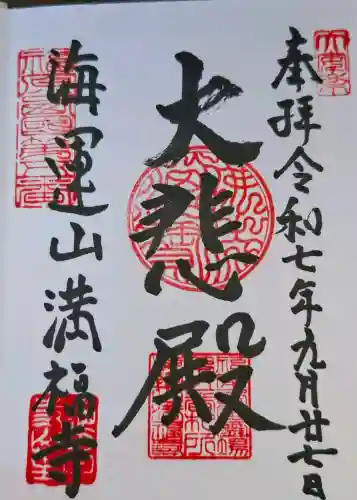 奉拝令和七年九月廿七日
大悲殿
海運山満福寺